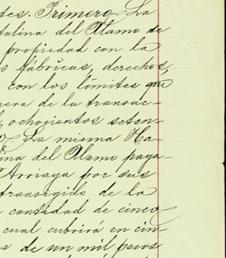 tes. Primero. La
talina del Alamo de
propiedad con la
s fábricas, derechos,
con los límites que
era de la transac-
ochocientos seten-
La misma Ha-
ina del Alamo paga-
Arriaga por sus
transigido de la
cantidad de cinco
cual cubrirá en cin-
s de un mil pesos